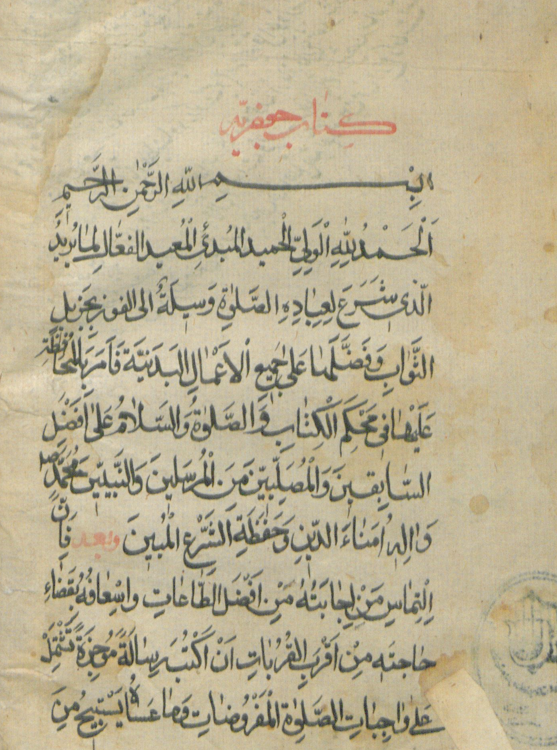 كتاب جعفريه
بسم الله الرَّحْمٰنِ الرَّحيمِ
اَلْحَمْدُ لِلّٰهِ الْوَلِيِّ الْحَميدِ المُبدِئِ الْمُعيدِ الفَعّالِ لِمَا يُريدُ
الَّذى شَرَعَ لِعِبادِهِ الصَّلوٰةَ وَسيلَةً الى الفوزِ بِجَزيلِ
الثَّوابِ وَفَضَّلَها عَلىٰ جَميعِ الْاَعْمالِ البَدَنِيَّةِ فَاَمَرَ بِالْمُحافَظَةِ
عَلَيْها فى مُحْكَمِ الْكِتابِ وَالصَّلوٰةُ وَالسَّلامُ عَلىٰ اَفْضَلِ
السّابِقينَ وَالْمُصَلّينَ مِنَ الْمُرسَلينَ وَالنَّبِيّينَ مُحَمَّدٍ
وَاٰلِهِ اُمَناءِ الدّينِ وَحَفَظَةِ الشَّرْعِ الْمُبينِ وبعد فَاِنَّ
اِلْتِماسَ مَنْ اِجابَتُهُ مِنْ اَفْضَلِ الطّاعاتِ وَاسْعافُهُ بِقَضاءِ
حاجَتِه مِنْ اَقْرَبِ القُرُباتِ اَنْ اَكْتُبَ رِسالَةً مُوجَزَةً تَشْتَمِلُ
عَلىٰ واجِباتِ الصَّلوٰةِ الْمَفْرُوضاتِ وَما عَساهُ يَسْتَبيحُ مِنَ